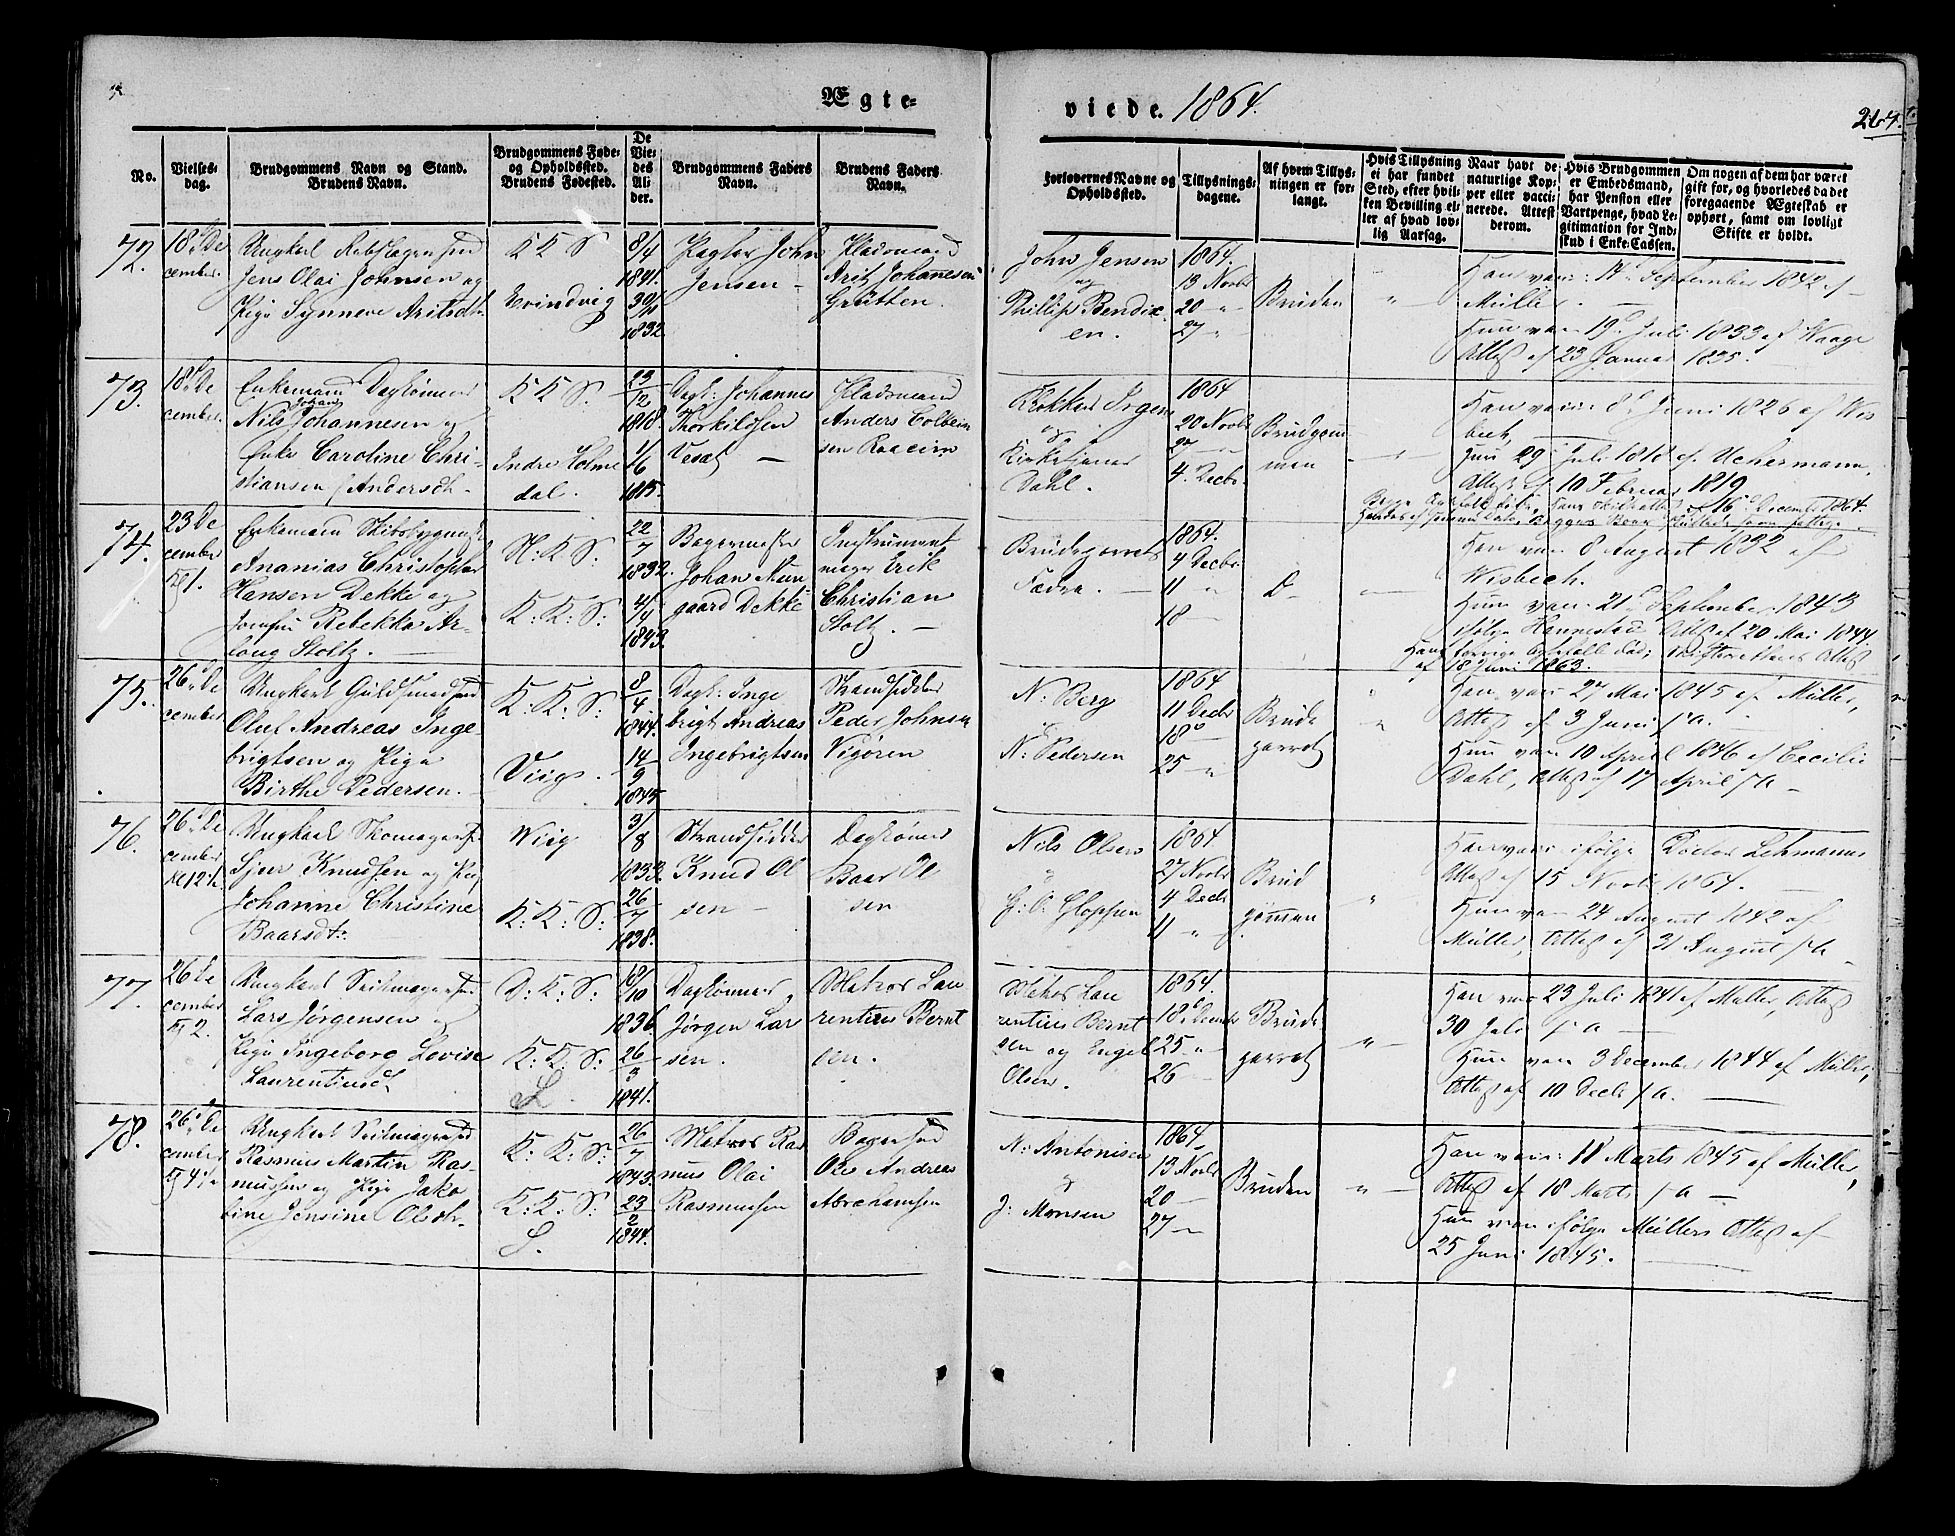 Ægte-
viede. 1864.
264.
No.
Vielses-
dag.
Brudgommens Navn og Stand.
Brudens Navn.
Brudgommens Føde-
og Opholdssted.
Brudens Fødested.
De
Vie-
des
Al-
der.
Brudgommens Faders
Navn.
Brudens Faders
Navn.
Forlovernes Navne og
Opholdssted.
Tillysnings-
dagene.
Af hvem Tillys-
ningen er for-
langt.
Hvis Tillysning
ei har fundet
Sted, efter hvil-
ken Bevilling el-
ler af hvad lov-
lig Aarsag.
Naar havt de
naturlige Kop-
per eller vacci-
nerede. Attest
derom.
Hvis Brudgommen
er Embedsmand,
har Pension eller
Vartpenge, hvad Le-
gitimation for Ind-
skud i Enke-Cassen.
Om nogen af dem har været
gift for, og hvorledes da det
foregaaende Ægteskab er
ophørt, samt om lovligt
Skifte er holdt.
72.
18 De
cember.
Ungkarl
Jens Olai Johnsen og
Pige Synneve Aritsdt.
K K S.
Evindvig
8/4
1841.
30/1
1832.
John
Jensen –
Gaardmand
Arit Johanesen
Grütten.
John Jensen
og
Phillip Bendix
en.
1864.
13 Novbr
20 –
27 –
Bruden
"
Han vacc: 14 September 1842 af
Müller. –
Hun vacc 19 Juli 1833 af Waage
Attest af 23 Januar 1835.
73.
18 De
cember.
Enkemand Dagløner
Johan
Nils Johannesen og
Enke Caroline Chri-
stiansen f Andersdt.
K K S.
Indre Holme
dal.
23
12
1818.
1/6
1815.
Dagl: Johannes
Thorkildsen
–
Gaardmand
Anders Colbein
sen
og
Dahl.
1864
20 Novbr
27 –
4 Decbr.
Brudgom
men
Han vacc: 8 Juni 1826 af Wis
bech,
Hun 29 Juli 1818 af Uchermann,
Attest af 10 Februar 1819
16 December 1864.
74.
23 De
cember
Kl 1.
Enkemand Skibsbygmst
Ananias Christopher
Hansen Dekke og
Jomfru Rebekka Ar-
Stoltz. –
N: K S:
K: K: S:
22
7
1832.
4/4
1843.
Bagermester
Johan
gaard Dekke
Instrument
mager Erik
Christian
Stoltz. –
Brudeparrets
Fædre. –
1864.
4 Decbr
11 "
18 –
D–
Han vac 8 August 1832 af
Wisbech.
Hun vac: 21 September 1843
ifølge Hannestad Attest af 20 Mai 1844
af 18 Juni 1863.
75.
26 De
cember
Ungkarl Guldsmedsvend
Oluf Andreas Inge-
brigtsen og Pige
Birthe Pedersen. –
K: K: S:
Viig.
8
4
1844.
14
9
1845
Dagl: Inge
brigt Andreas
Ingebrigtsen
Strandsidder
Peder Johnsen
Vigören
N: Berg
N: Pedersen
1864
11 Decbr
18 –
25 –
Brude
parret
"
Han vacc 27 Mai 1845 af Müller,
Attest af 3 Juni s. a. –
Hun vacc 10 April 1846 af Cecilie
Dahl, Attest af 17 April s a –
76.
26 De
cember
Ungkarl Skomagersv
Sjur Knudsen og Pige
Johanne Christine
Baarsdt.
Viig
K: K: S:
3/
8
1833.
26
7
1838.
Strandsidder
Knud Ol
sen –
Dagløner
Baar Ol
sen –
Nils Olsen
"
Gloppen
1864
27 Novbr
4 Decbr
11 "
Brud
gommen
"
Han vacc ifølge Doctor Lehmanns
Attest af 15 Novbr 1864. –
Hun vacc 24 August 1842 af
Müller, Attest af 31 August s a –
77.
26 De
cember
Kl 2.
Ungkarl Seilmagersvend
Lars Jørgensen og
Pige Ingeborg Lovise
Laurentiusd.
D: K: S:
K: K: S:
18/
10
1836.
26
3
1841.
Dagløner
Jørgen Lar
sen.
Matros Lau
rentius Bernt
sen.
Matros Lau
rentius Bernt
sen og Engel
Olsen.
1864.
18 Decembr
25 "
26 –
Brude
parret
"
Han vacc 23 Juli 1841 af Müller, Attest
30 Juli s a –
Hun vacc 3 December 1844 af Müller,
Attest af 10 Decbr s a. –
78.
26 De
cember
Kl 4
Ungkarl Seilmagersvend
Rasmus Martin Ras-
mussen og Pige Jako
bine Jensine Olsdt.
K: K: S:
K: K: S:
26
7
1843.
23
2
1844.
Matros Ras
mus Olai
Rasmussen
Bagersvend
Ole Andreas
Abrahamsen
N: Antonisen
og
J: Monsen
1864
13 Novbr
20 –
27 "
Bruden
"
Han vacc: 11 Marts 1845 af Müller,
Attest af 18 Marts s a –
Hun vacc ifølge Müllers Attest af
25 Juni 1845. –